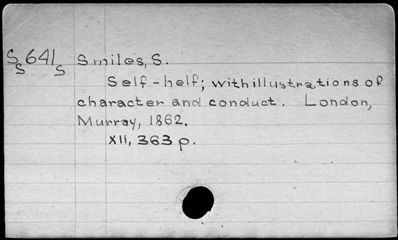 S641 Smiles, S.
S S
Self-help; with illustrations of
character and conduct. London,
Murray, 1862.
XII, 363 p.